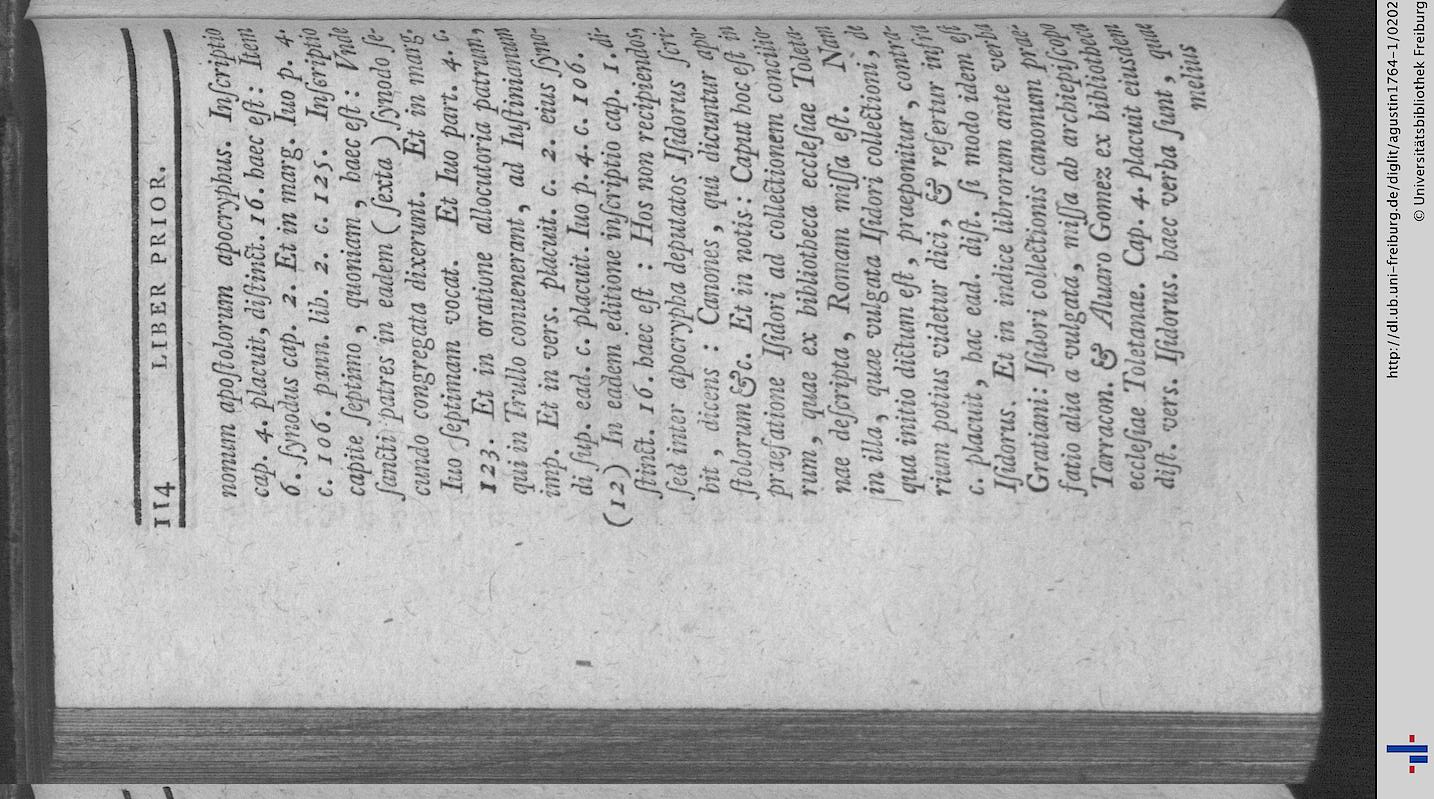 114 LIBER PRIOR.
nonum apoſtolorum apocryphus. Inſcriptio
cap. 4. placuit, diſtinct. 16. haec eſt: Item
6. ſynodus cap. 2. Et in marg. Iuo p. 4.
c. 106. pann. lib. 2. c. 125. Inſcriptio
capite ſeptimo, quoniam, haec eſt: Vnde
ſancti patres in eadem (ſexta) ſynodo ſe-
cundo congregata dixerunt. Et in marg.
Iuo ſeptimam vocat. Et Iuo part. 4. c.
123. Et in oratione allocutoria patrum,
qui in Trullo conuenerant, ad Iuſtinianum
imp. Et in vers. placuit. c. 2. eius ſyno-
di ſup. ead. c. placuit. Iuo p. 4. c. 106.
(12) In eadem editione inſcriptio cap. 1. di-
ſtinct. 16. haec eſt: Hos non recipiendos,
ſed inter apocrypha deputatos Iſidorus ſcri-
bit, dicens: Canones, qui dicuntur apo-
ſtolorum &c. Et in notis: Caput hoc eſt in
praefatione Iſidori ad collectionem concilio-
rum, quae ex bibliotheca eccleſiae Toleta-
nae deſcripta, Romam miſſa eſt. Nam
in illa, quae vulgata Iſidori collectioni, de
qua initio dictum eſt, praeponitur, contra-
rium potius videtur dici, & refertur infra
c. placuit, hac ead. diſt. ſi modo idem eſt
Iſidorus. Et in indice librorum ante verba
Gratiani: Iſidori collectionis canonum prae-
fatio alia a vulgata, miſſa ab archiepiſcopo
Tarracon. & Aluaro Gomez ex bibliotheca
eccleſiae Toletanae. Cap. 4. placuit eiusdem
diſt. vers. Iſidorus. haec verba ſunt, quae
melius
http://dl.ub.uni-freiburg.de/diglit/agustin1764-1/0202
© Universitätsbibliothek Freiburg